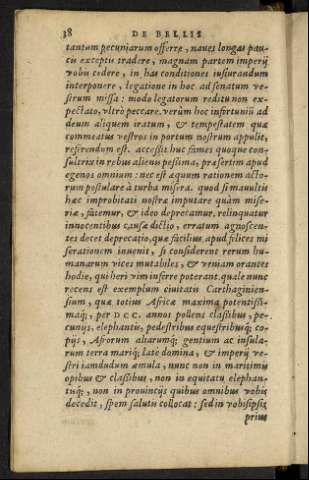 38 DE BELLIS
tantum pecuniarum offerre, naues longas pau-
cis exceptis tradere, magnam partem imperij
vobis cedere, in has conditiones iusiurandum
interponere, legatione in hoc ad senatum ve-
strum missa: modo legatorum reditu non ex-
pectato, vltrò peccare. verùm hoc infortunij ad
deum aliquem iratum, & tempestatem quæ
commeatus vestros in portum nostrum appulit,
referendum est. accessit huc fames quoque con-
sultrix in rebus alienis pessima, præsertim apud
egenos omnium: nec est æquum rationem acto-
rum postulare à turba misera. quod si mauultis
hæc improbitati nostræ imputare quàm mise-
riæ, fatemur, & ideo deprecamur. relinquatur
innocentibus causæ dictio, erratum agnoscen-
tes decet deprecatio, quæ facilius apud felices mi
serationem inuenit, si considerent rerum hu-
manarum vices mutabiles, & veniam orantes
hodie, qui heri vim inferre poterant. quale nunc
recens est exemplum ciuitatis Carthaginien-
sium, quæ totius Africæ maxima potentissi-
maq́;, per DCC. annos pollens classibus, pe-
cunijs, elephantis, pedestribus equestribusq́; co-
pijs, Afrorum aliarumq́; gentium ac insula-
rum terra mariq́; late domina, & imperij ve-
stri iamdudum æmula, nunc non in maritimis
opibus & classibus, non in equitatu elephan-
tisq́;, non in prouincijs quibus omnibus vobis
decedit, spem salutis collocat: sed in vobisipsis
prius